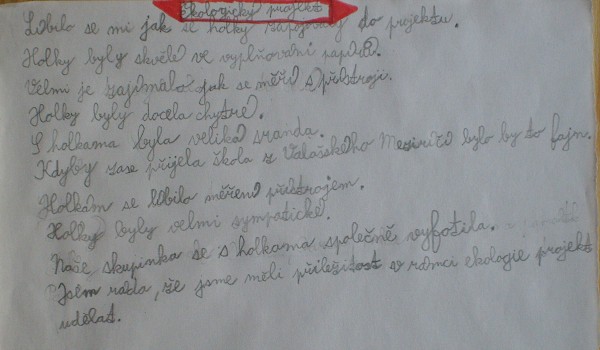 Ekologický projekt
Líbilo se mi jak se holky zapojovaly do projektu.
Holky byly skvělé ve vyplňování papírů.
Velmi je zajímalo jak se měří s přístroji.
Holky byly docela chytré.
S holkama byla veliká sranda.
Kdyby zase přijela škola z Valašského Meziříčí bylo by to fajn.
Holkám se líbilo měření přístrojem.
Holky byly velmi sympatické.
Naše skupinka se s holkama společně vyfotila.
Jsem ráda, že jsme měli příležitost v rámci ekologie projekt
udělat.